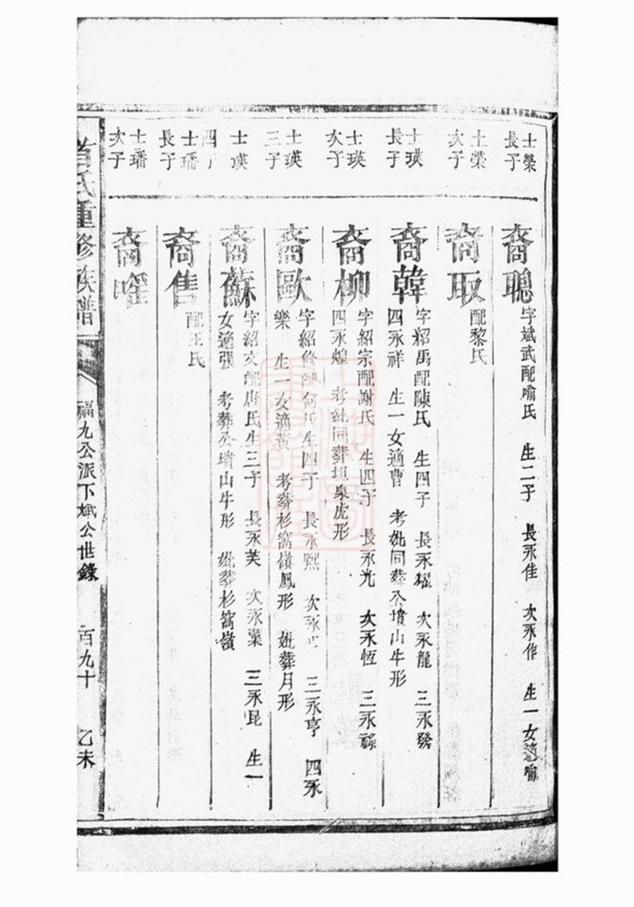 士榮
長子
裔聰
字斌武配喻氏 生二子 長永佳 次永作 生一女適喻
士榮
次子
裔取
配黎氏
士瑛
長子
裔韓
字紹禹配陳氏 生四子 長永耀 次永龍 三永發
四永祥 生一女適曹 考妣同葬公墳山牛形
士瑛
次子
裔柳
字紹宗配謝氏 生四子 長永光 次永恆 三永祿
四永煌 考妣同葬 虎形
士瑛
三子
裔歐
字紹修配何氏生四子 長永熙 次永 三永亨 四永
樂 生一女適 考葬杉窩嶺鳳形 妣葬月形
士瑛
四
裔蘇
字紹文配唐氏生三子 長永芙 次永葉 三永昆 生一
女適張 考葬公墳山牛形 妣葬杉窩嶺
士璠
長子
裔售
配王氏
士璠
次子
裔
氏重修族譜
福九公派下斌公世錄
百九十
乙未